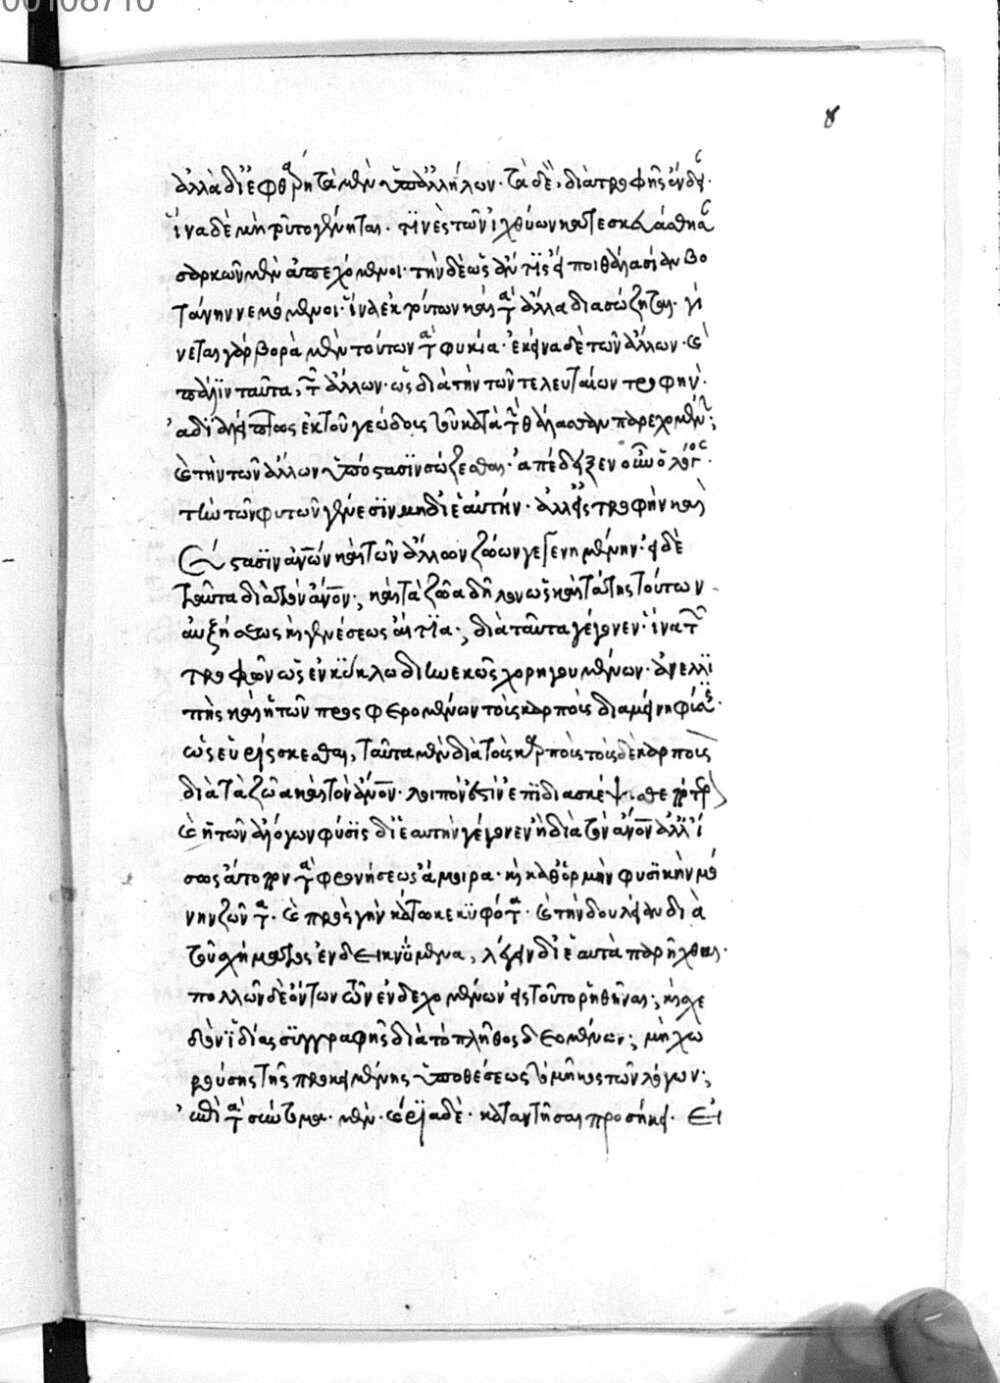 00108710
8
ἀλλὰ διεφθάρη τὰ μὲν ὑπ' ἀλλήλων· τὰ δὲ, διὰ τροφῆς ἔνδειαν·
ἵνα δὲ μὴ τοῦτο γένηται· τινὲς τῶν ἰχθύων
σαρκῶν μὲν ἀπεχόμενοι· τὴν δὲ ὡς ἄν τις εἴποι θαλασσίαν βο
τάνην νεμόμενοι· ἵνα ἐκ τούτων καὶ τὰ ἄλλα διασώζηται· γί
νεται γὰρ βορὰ μὲν τούτων τὰ φυκία· ἐκεῖνα δὲ τῶν ἄλλων· καὶ
πάλιν ταῦτα, τῶν ἄλλων· ὡς διὰ τὴν τῶν τελευταίων τροφὴν·
ἀδιαλείπτως ἐκ τοῦ γεώδους τοῦ κατὰ τὴν θάλασσαν παρεχομένην·
καὶ τὴν τῶν ἄλλων ὑπόστασιν σώζεσθαι· ἀπέδειξεν οὖν ὁ λόγος·
τὴν τῶν φυτῶν γένεσιν μὴ δι' ἑαυτήν· ἀλλ' εἰς τροφὴν καὶ
σύστασιν ἀνων καὶ τῶν ἄλλων ζώων γεγενημένην· εἰ δὲ
ταῦτα διὰ τὸν ἄνον· καὶ τὰ ζῶα δῆλον ὡς καὶ τὰ τῆς τούτων
αὐξήσεως καὶ γενέσεως αἴτια· διὰ ταῦτα γέγονεν· ἵνα τῶν
τροφῶν ὡς ἐν κύκλω διηνεκῶς χορηγουμένων· ἀνελλι
πὴς καὶ ἡ τῶν προσφερομένων τοῖς καρποῖς διαμείνη
ὡς εὑρίσκεσθαι, ταῦτα μὲν διὰ τοὺς καρποὺς τοὺς δὲ καρποὺς
διὰ τὰ ζῶα καὶ τὸν ἄνον· λοιπόν ἐστιν ἐπιδιασκέψασθαι
καὶ ἡ τῶν ἀλόγων φύσις δι' ἑαυτὴν γέγονεν ἢ διὰ τὸν ἄνον ἀλλ' ἴ
σως ἄτοπον τὰ φρονήσεως ἄμοιρα· καὶ καθ' ὁρμὴν φυσικὴν μό
νην ζῶντα· καὶ πρὸς γῆν κάτω κεκυφότα· καὶ τὴν δουλείαν διὰ
τοῦ σχήματος ἐνδεικνύμενα, λέγειν δι' ἑαυτὰ παρῆχθαι·
πολλῶν δὲ ὄντων τῶν ἐνδεχομένων εἰς τοῦτο ῥηθῆναι· καὶ σχε
δὸν ἰδίας συγγραφῆς διὰ τὸ πλῆθος δεομένων· μὴ χω
ρούσης τῆς προκειμένης ὑποθέσεως τὸ μῆκος τῶν λόγων·
ἐπὶ τὰ σύντομα· μὲν· καίρια δὲ· καταντῆσαι προσήκει· Εἰ